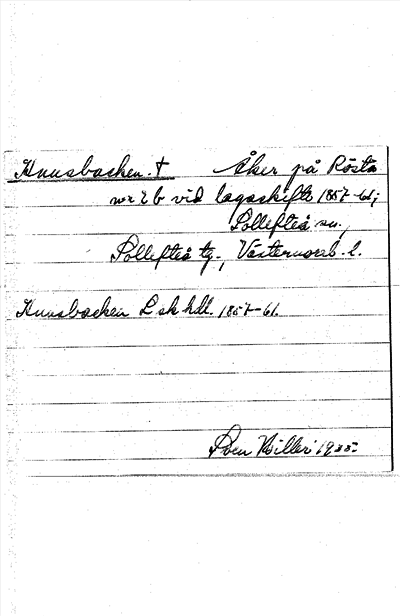 Knusbacken. † Åker på Rösta
nr 2 b vid lagaskifte 1857-61;
Sollefteå sn.,
Sollefteå tg., Västernorrl. l.
Knusbacken L sk hdl. 1857-61.
Sven 1935.